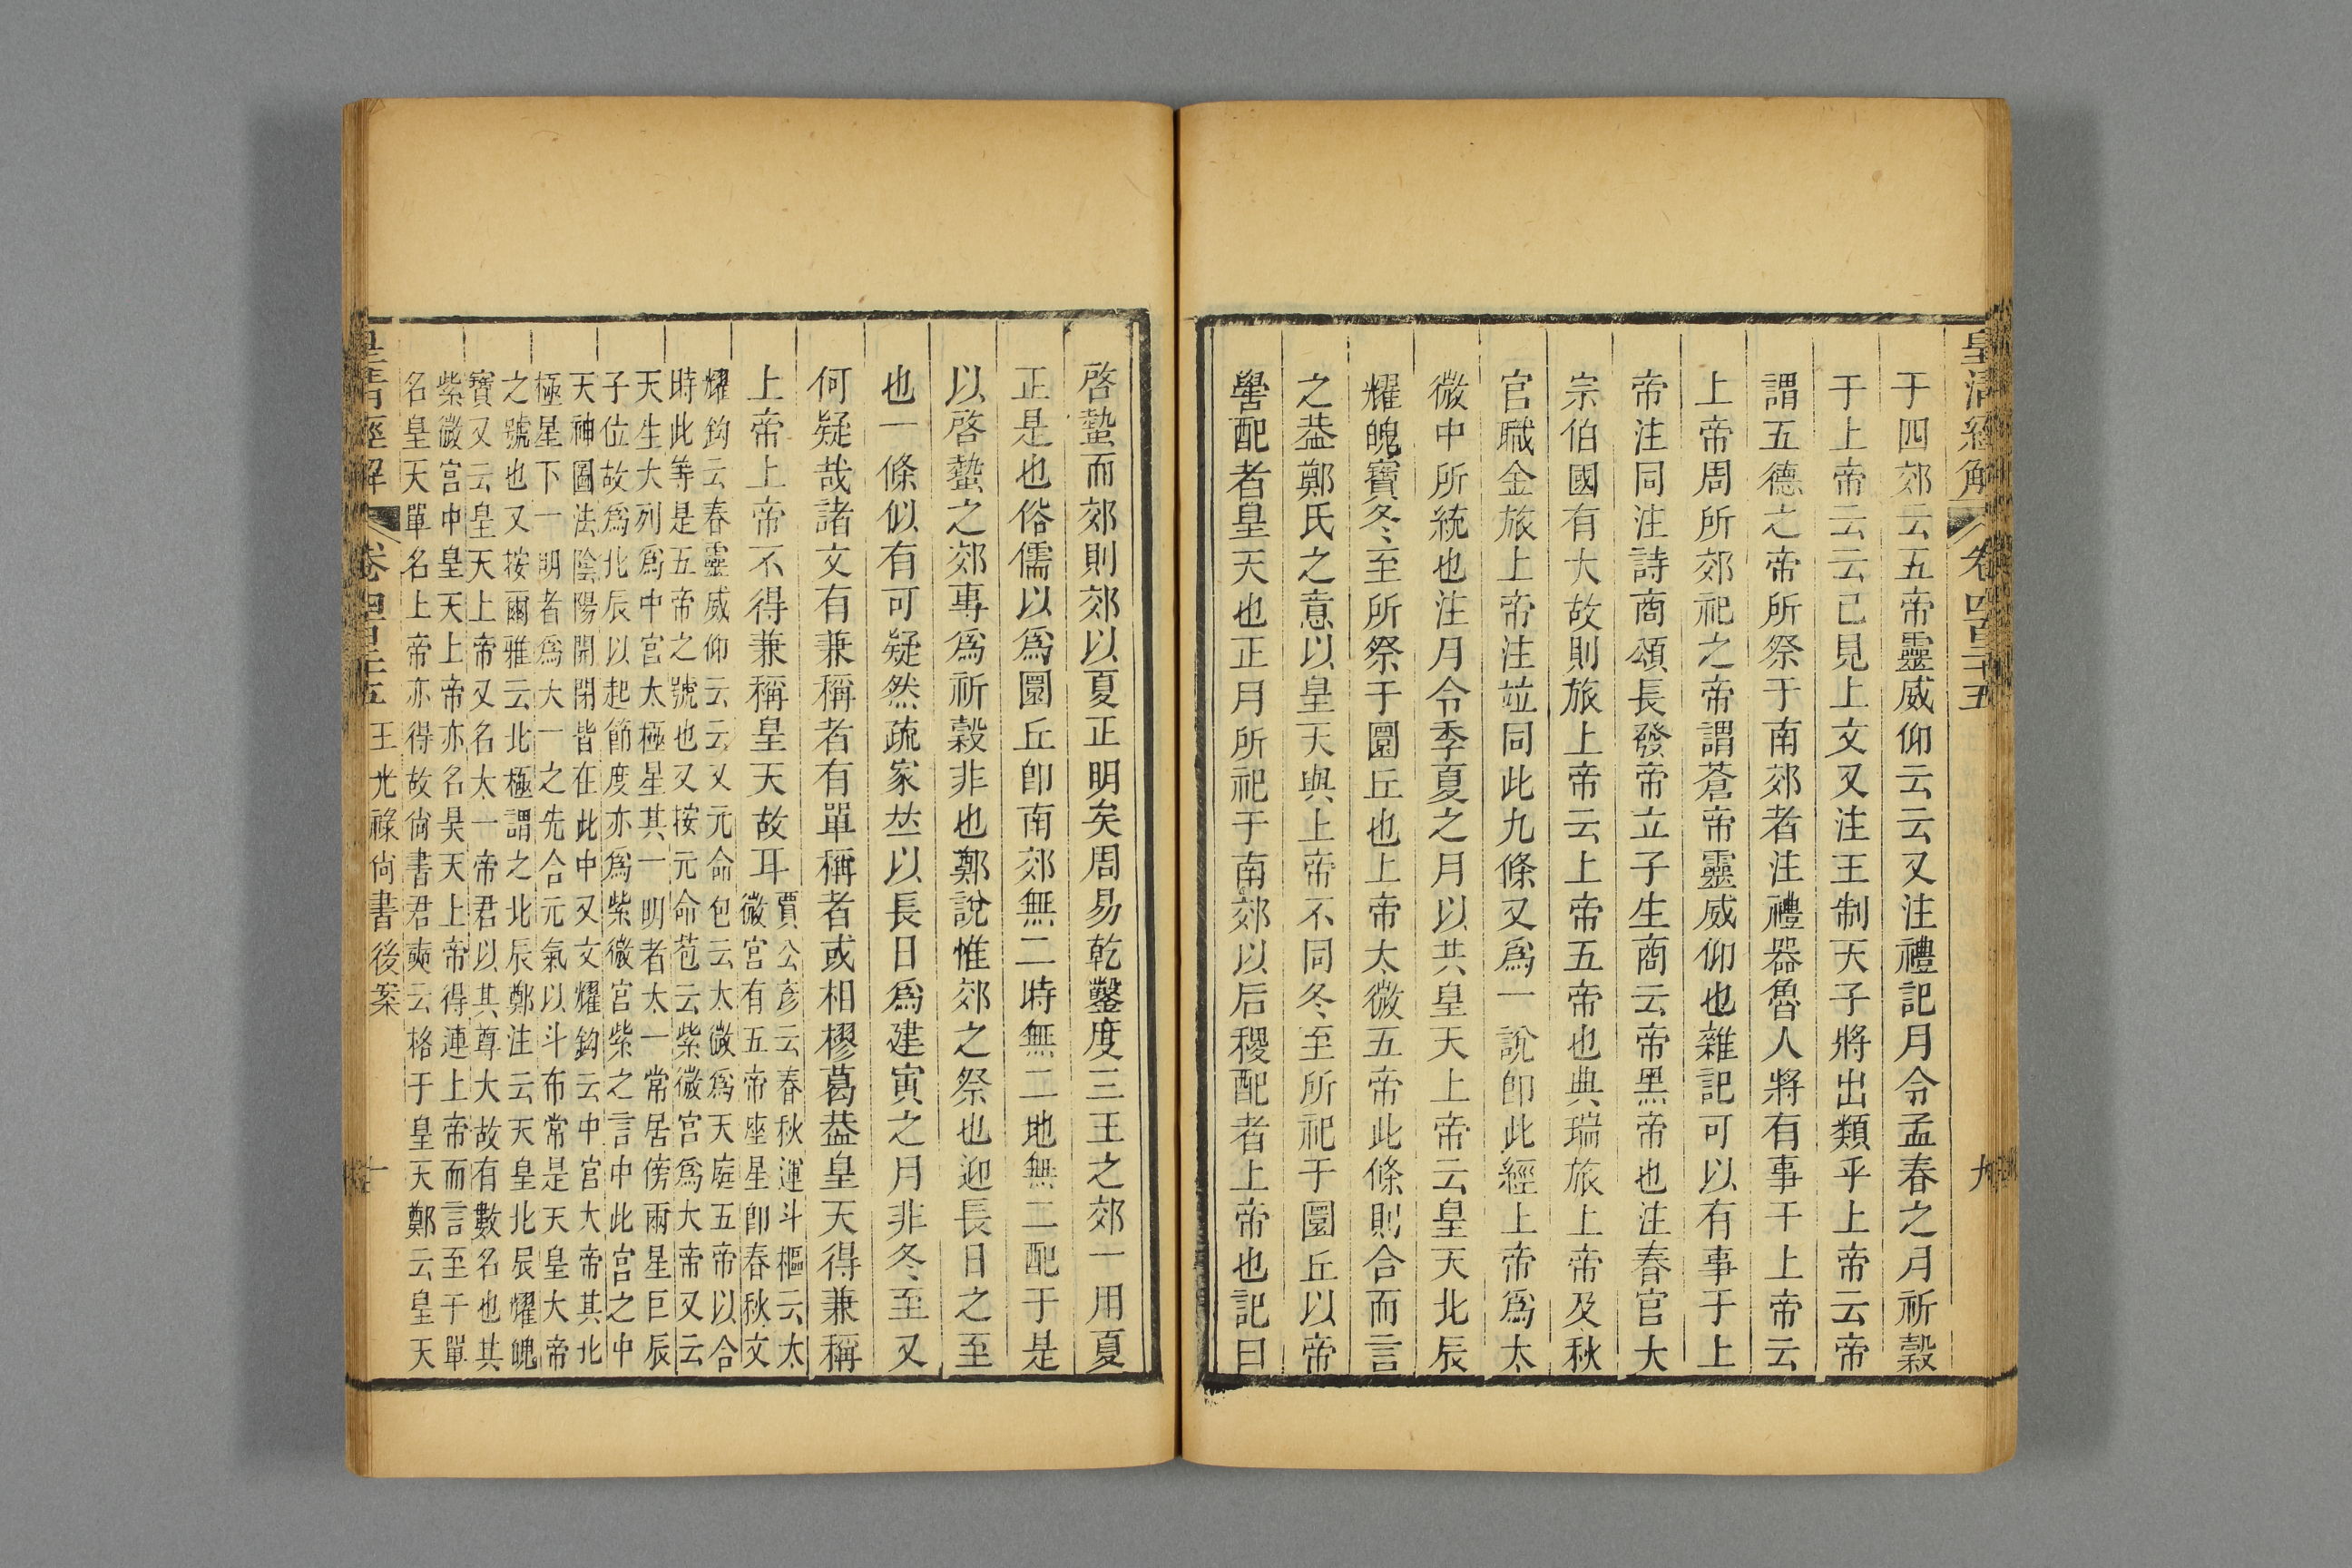 皇清經解 卷四百十五 九
于四郊云五帝靈威仰云云又注禮記月令孟春之月祈穀
于上帝云云已見上文又注王制天子將出類乎上帝云帝
謂五德之帝所祭于南郊者注禮器魯人將有事于上帝云
上帝周所郊祀之帝謂蒼帝靈威仰也雜記可以有事于上
帝注同注詩商頌長發帝立子生商云帝黑帝也注春官大
宗伯國有大故則旅上帝云上帝五帝也典瑞旅上帝及秋
官職金旅上帝注竝同此九條又爲一說卽此經上帝爲太
微中所統也注月令季夏之月以共皇天上帝云皇天北辰
耀魄寶冬至所祭于圜丘也上帝太微五帝此條則合而言
之葢鄭氏之意以皇天與上帝不同冬至所祀于圜丘以帝
嚳配者皇天也正月所祀于南郊以后稷配者上帝也記曰
啓蟄而郊則郊以夏正明矣周易乾鑿度三王之郊一用夏
正是也俗儒以爲圜丘卽南郊無二時無二地無二配于是
以啓蟄之郊專爲祈穀非也鄭說惟郊之祭也迎長日之至
也一條似有可疑然疏家竝以長日爲建寅之月非冬至又
何疑哉諸文有兼稱者有單稱者或相樛葛葢皇天得兼稱
上帝上帝不得兼稱皇天故耳
賈公彥云春秋運斗樞云太
微宮有五帝座星卽春秋文
耀鈎云春靈威仰云云又元命包云太微爲天庭五帝以合
時此等是五帝之號也又按元命苞云紫微宮爲大帝又云
天生大列爲中宮太極星其一明者太一常居傍兩星巨辰
子位故爲北辰以起節度亦爲紫微宮紫之言中此宮之中
天神圖法陰陽開閉皆在此中又文耀鈎云中宮大帝其北
極星下一明者爲大一之先合元氣以斗布常是天皇大帝
之號也又按爾雅云北極謂之北辰鄭注云天皇北辰耀魄
寶又云皇天上帝又名太一帝君以其尊大故有數名也其
紫微宮中皇天上帝亦名昊天上帝得連上帝而言至于單
名皇天單名上帝亦得故尙書君奭云格于皇天鄭云皇天
皇清經解 卷四百十五 王光祿尙書後案 十